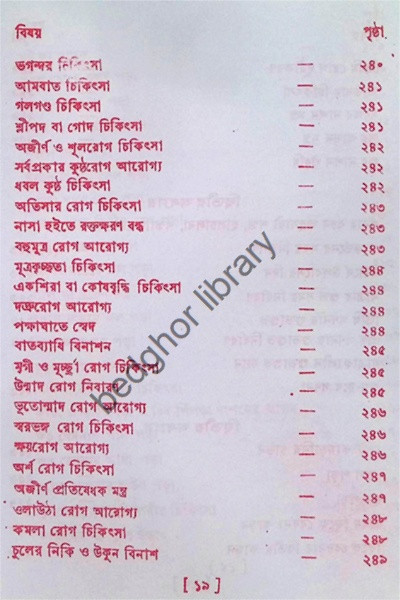 বিষয় পৃষ্ঠা
ভগন্দর চিকিৎসা — ২৪০
আমবাত চিকিৎসা — ২৪১
গলগণ্ড চিকিৎসা — ২৪১
শ্লীপদ বা গোদ চিকিৎসা — ২৪১
অজীর্ণ ও শূলরোগ চিকিৎসা — ২৪২
সর্বপ্রকার কুষ্ঠরোগ আরোগ্য — ২৪২
ধবল কুষ্ঠ চিকিৎসা — ২৪২
অতিসার রোগ চিকিৎসা — ২৪৩
নাসা হইতে রক্তক্ষরণ বন্ধ — ২৪৩
বহুমূত্র রোগ আরোগ্য — ২৪৩
মূত্রকৃচ্ছতা চিকিৎসা — ২৪৪
একশিরা বা কোষবৃদ্ধি চিকিৎসা — ২৪৪
দদ্রুরোগ আরোগ্য — ২৪৪
পক্ষাঘাতে স্বেদ — ২৪৪
বাতব্যাধি বিনাশন — ২৪৫
মৃগী ও মূর্চ্ছা রোগ চিকিৎসা — ২৪৫
উন্মাদ রোগ নিবারণ — ২৪৫
ভূতোন্মাদ রোগ আরোগ্য — ২৪৬
স্বরভঙ্গ রোগ চিকিৎসা — ২৪৬
ক্ষয়রোগ আরোগ্য — ২৪৬
অর্শ রোগ চিকিৎসা — ২৪৭
অজীর্ণ প্রতিষেধক মন্ত্র — ২৪৭
ওলাউঠা রোগ আরোগ্য — ২৪৮
কমলা রোগ চিকিৎসা — ২৪৮
চুলের নিকি ও উকুন বিনাশ — ২৪৯
[ ১৯ ]
bedghor library